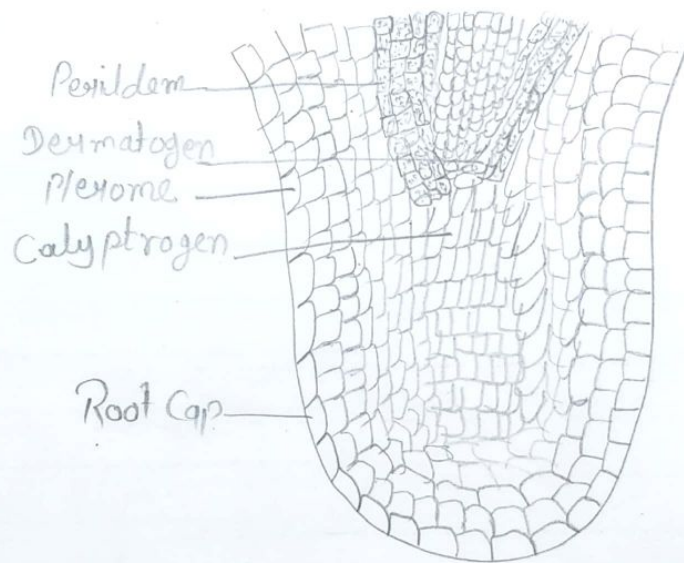 Perildem
Dermatogen
Plerome
Calyptrogen
Root Cap